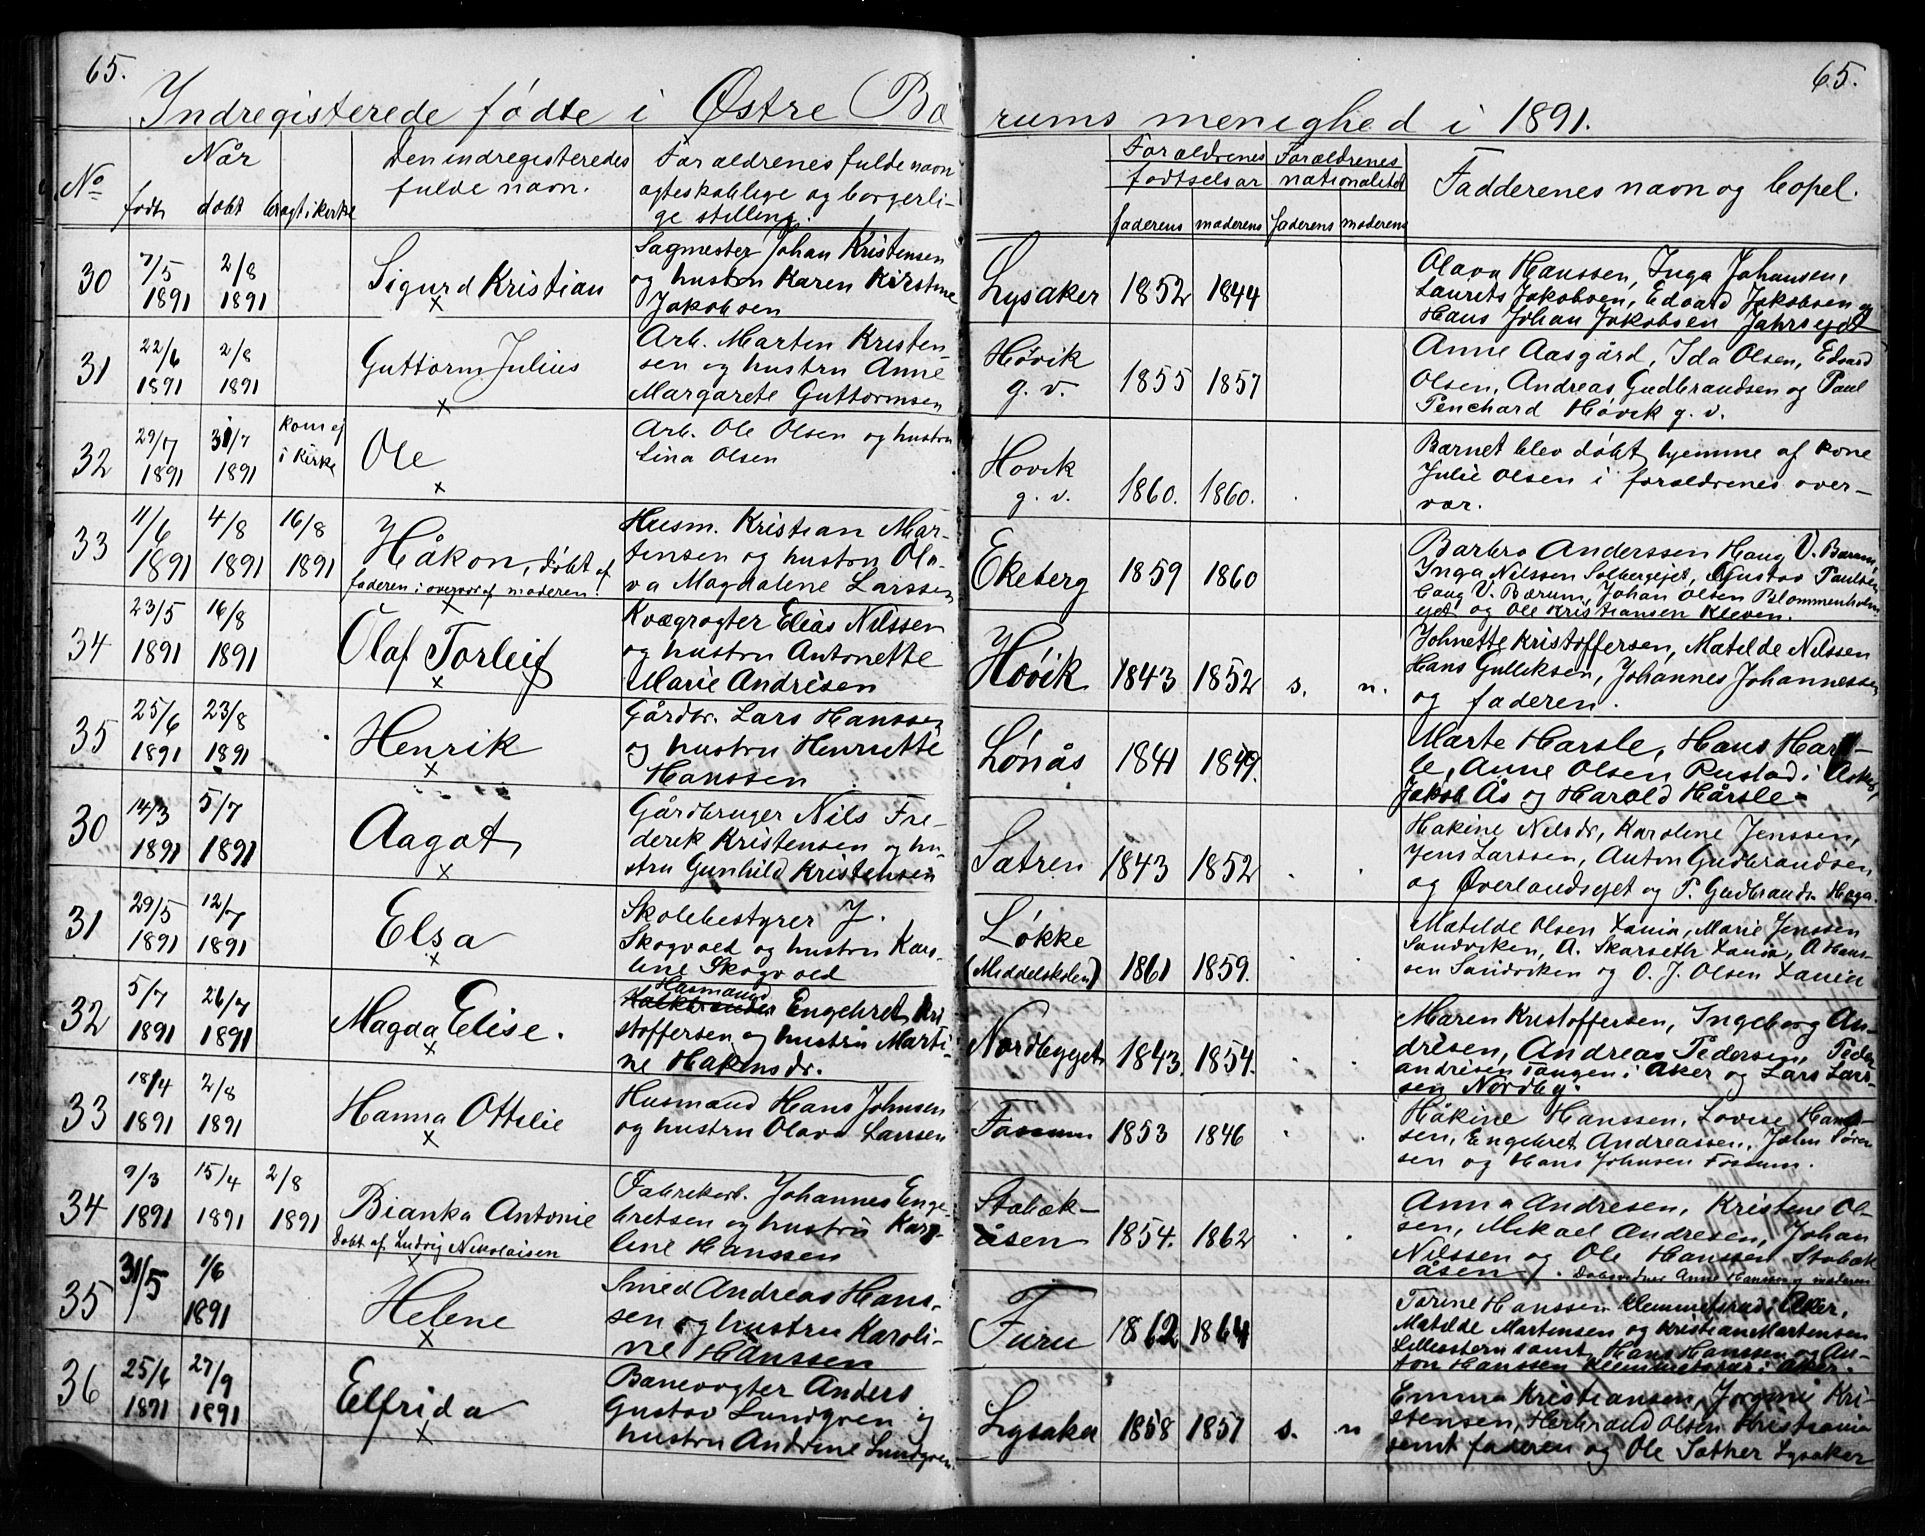 65.
65.
Indregisterede fødte i Østre Bærums menighed i 1891.
No
Når
født døbt bragt i kirke
Den indregisteredes
fulde navn.
Forældrenes fulde navn
ægteskablige og borgerli-
ge stilling.
Forældrenes
fødtselsår
Forældrenes
nationalitet
faderens moderens faderens moderens
Fadderenes navn og bopel.
30
7/5 2/8
1891 1891
Sigurd Kristian
x
Sagmester Johan Kristensen
og hustru Karen Kirstine
Jakobsen
Lysaker 1852 1844
Olava Hanssen, Inga Johansen,
Laurits Jakobsen, Edvard Jakobsen og
Hans Johan Jakobsen Jahrsejet
31
22/6 2/8
1891 1891
Guttorm Julius
x
Arb. Martin Kristen-
sen og hustru Anne
Margarete Guttormsen
Høvik
g. v. 1855 1857
Anne Aasgård, Ida Olsen, Edvard
Olsen, Andreas Gudbrandsen og Paul
Penchard Høvik g. v.
32
29/7 31/7 kom ej
1891 1891 i kirke
Ole
x
Arb. Ole Olsen og hustru
Lina Olsen
Høvik
g. v. 1860. 1860.
Barnet blev døbt hjemme af kone
Julie Olsen i forældrenes over-
vær.
33
11/6 4/8 16/8
1891 1891 1891
Håkon, døbt af
faderen i overvær af moderen.
x
Husm. Kristian Mar-
tinsen og hustru Ola-
va Magdalene Larssen
Ekeberg 1859 1860
Barbro Anderssen Haug V. Bærum,
Inga Nilssen Solbergejet, Gustav Paulsen
Haug V. Bærum, Johan Olsen Blommenholm
ejet og Ole Kristiansen Kleven.
34
23/5 16/8
1891 1891
Olaf Torleif
x
Kvægrøgter Elias Nilssen
og hustru Antonette
Marie Andrésen
Høvik 1843 1852 s. n.
Johnette Kristoffersen, Matilde Nilssen
Hans Gulliksen, Johannes Johannessen
og faderen.
35
25/6 23/8
1891 1891
Henrik
x
Gårdbr. Lars Hanssen
og hustru Henriette
Hanssen
Lønås 1841 1849.
Marte Harsle, Hans Hars-
le, Anne Olsen Rustad i Asker,
Jakob Ås og Harald Hårsle
30
14/3 5/7
1891 1891
Aagot
x
Gårdbruger Nils Fre-
derik Kristensen og hu-
stru Gunhild Kristensen
Sætren 1843 1852
Hakine Nilsdr, Karoline Jenssen,
Jens Larssen, Anton Gudbrandsen
og Øverlandsejet og P. Gudbrands. Haga.
31
29/5 12/7
1891 1891
Elsa
x
Skolebestyrer J.
Skogvold og hustru Karo-
line Skogvold
Løkke
(Middelskolen) 1861 1859.
Matilde Olsen Xania, Marie Jenssen
Sandviken, A. Skarseth Xania, A Hans-
sen Sandviken og O. J. Olsen Xania
32
5/7 26/7
1891 1891
Magda Elise.
x
Husmand
Engebret Kri
stoffersen og hustru Marti-
ne Hakensdr.
Nordbyejet 1843. 1854.
Maren Kristoffersen, Ingeborg An-
drisen, Andreas Pedersen, Peder
andrisen Tangen i Aker og Lars Lars-
sen Nordby.
33
18/4 2/8
1891 1891
Hanna Ottilie
x
Husmand Hans Johnsen
og hustru Olava Larsen
Fossum 1853 1846
Håkine Hanssen, Lovise Hans-
sen, Engebret Andreassen, John Søren
sen og Hans Johnsen Fossum.
34
9/3 15/4 2/8
1891 1891 1891
Bianka Antonie
Døbt af Ludvig Nikolaisen
x
Fabrikarb. Johannes Enge-
bretsen og hustru Karo-
line Hanssen
Stabæk-
åsen 1854. 1862
Anna Andresen, Kristine Ol-
sen, Mikael Andresen, Johan
Nilssen og Ole Hanssen Stabæk
åsen. Døbsvidner Anne Hanssen og moderen
35
31/5 1/6
1891
Helene
x
Smed Andreas Hans-
sen og hustru Karoli-
ne Hanssen
Furu 1862 1864
Torine Hanssen Klemmetsrud i Aker,
Matilde Martensen og Kristian Martensen
samt Hans Hanssen og An-
ton Hanssen Klemmetsrud i Aker.
36
25/6 27/9
1891 1891
Elfrida
x
Banevogter Anders
Gustav Lundgren og
hustru Andrine Lundgren.
Lysaker 1858 1857 s. n
Emma Kristiansen, Jørgine Kri-
stensen, Herbrand Olsen Kristiania
samt faderen og Ole Sæther Lysaker